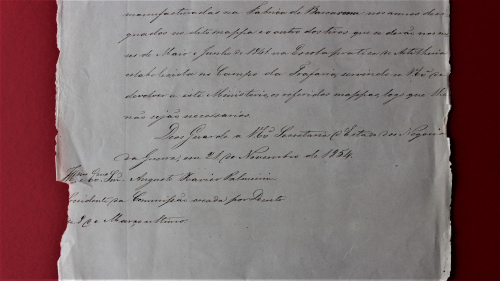 manufacturadas na Fabrica de Barcarena nos annos desi-
gnados no dito mappa e o outro dos tiros que se derão nos me-
zes de Maio e Junho de 1841 na Escola pratica de Artilheria
estabelecida no Campo da Trafaria, servindo-se V Ex.ª
devolver a este Ministerio, os referidos mappas, logo que lhe
não sejão necessarios.
Deos Guarde a V Ex.ª Secretaria d'Estado dos Negocios
da Guerra, em 21 de Novembro de 1854.
Augusto Xavier Palmeirim
Presidente da Commissão creada por Decreto
de Março ultimo